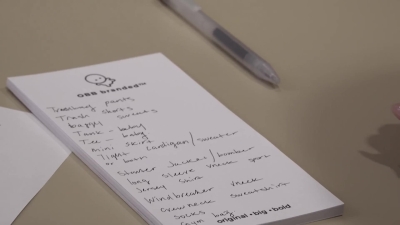 OBB branded
Tracking pants
Track shorts
baggy sweats
Tank - baby
Tee - baby
mini skirt
Tight cardigan/sweater
Shooter Jacket/bomber
long sleeve mesh
Jersey
Windbreaker
Crew neck sweatshirt
Socks
Gym bag
original•big•bold